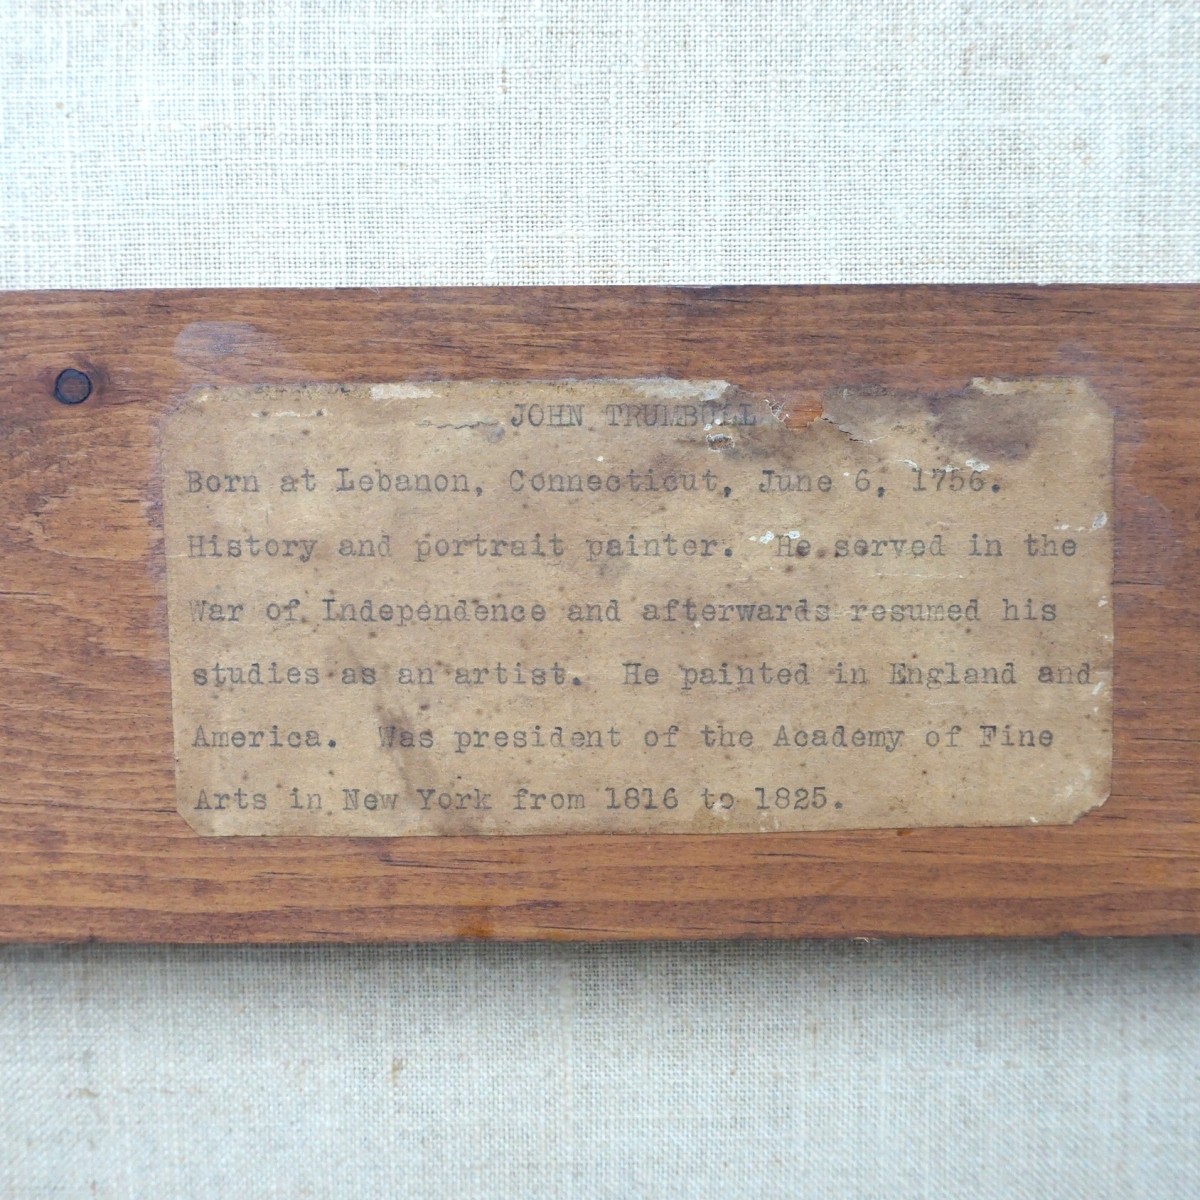 JOHN TRUMBULL
Born at Lebanon, Connecticut, June 6, 1756.
History and portrait painter. He served in the
War of Independence and afterwards resumed his
studies as an artist. He painted in England and
America. Was president of the Academy of Fine
Arts in New York from 1816 to 1825.